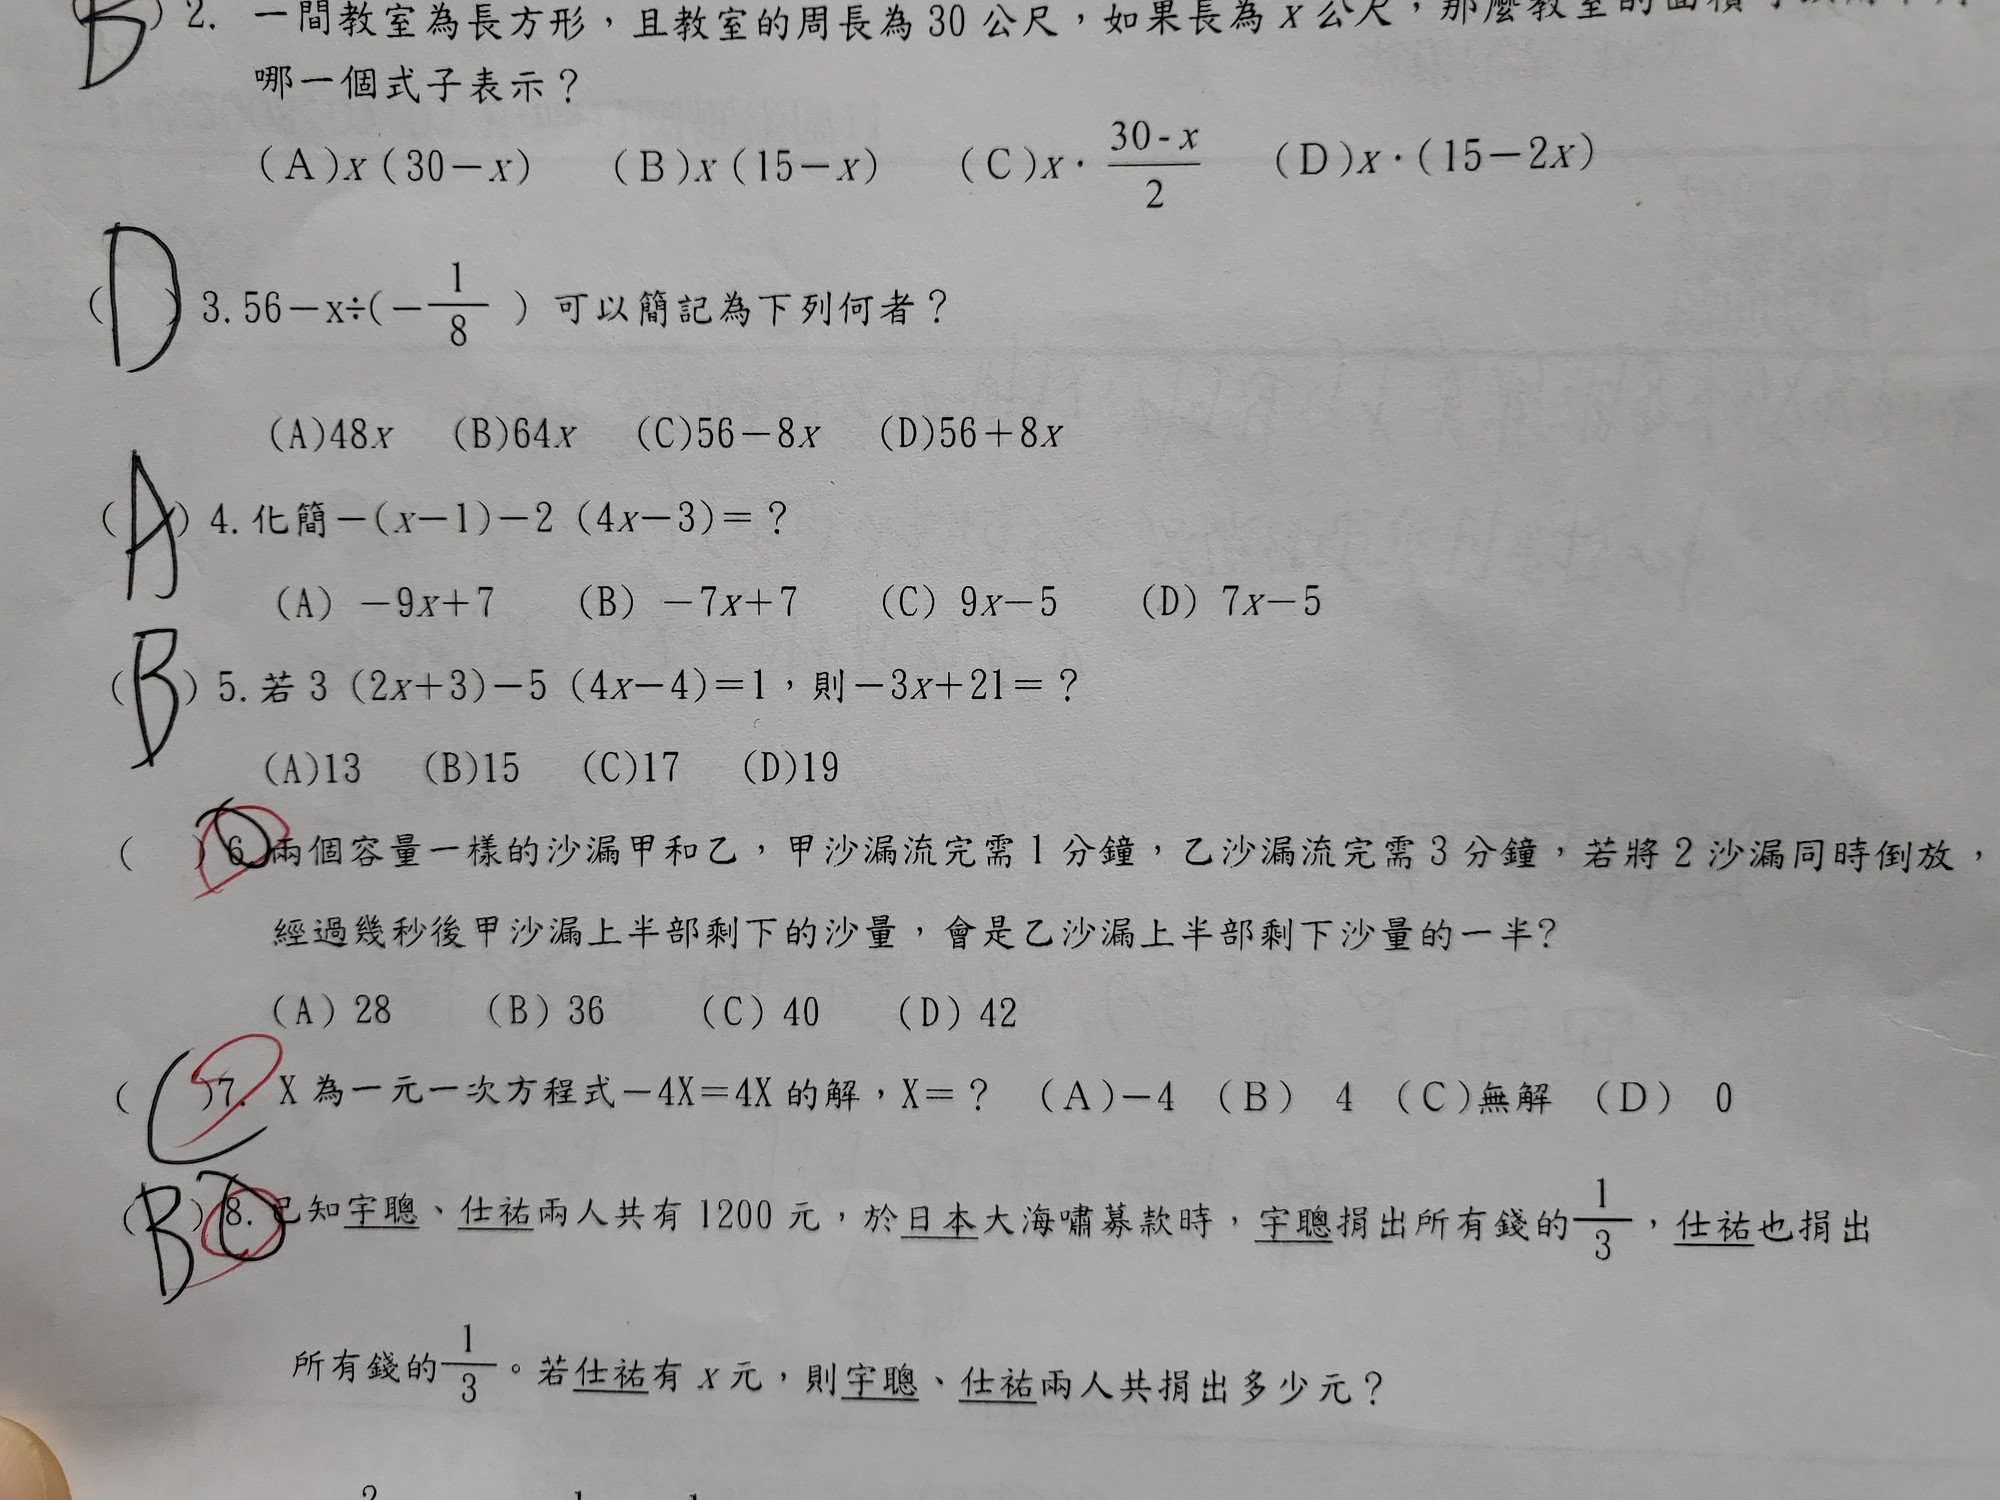 B ) 2. 一間教室為長方形，且教室的周長為 30 公尺，如果長為 x 公尺，那麼教室的面積
哪一個式子表示？
(A)x(30－x) (B)x(15－x) (C)x·\frac{30-x}{2} (D)x·(15－2x)
( D ) 3. 56－x÷(－\frac{1}{8}) 可以簡記為下列何者？
(A)48x (B)64x (C)56－8x (D)56＋8x
( A ) 4. 化簡－(x－1)－2 (4x－3)＝？
(A) －9x＋7 (B) －7x＋7 (C) 9x－5 (D) 7x－5
( B ) 5. 若 3 (2x＋3)－5 (4x－4)＝1，則－3x＋21＝？
(A)13 (B)15 (C)17 (D)19
( ) 6. 兩個容量一樣的沙漏甲和乙，甲沙漏流完需 1 分鐘，乙沙漏流完需 3 分鐘，若將 2 沙漏同時倒放，
經過幾秒後甲沙漏上半部剩下的沙量，會是乙沙漏上半部剩下沙量的一半?
(A) 28 (B) 36 (C) 40 (D) 42
( C )7. X 為一元一次方程式－4X＝4X 的解，X＝？ (A)－4 (B) 4 (C)無解 (D) 0
( B ) D 8. 已知宇聰、仕祐兩人共有 1200 元，於日本大海嘯募款時，宇聰捐出所有錢的\frac{1}{3}，仕祐也捐出
所有錢的\frac{1}{3}。若仕祐有 x 元，則宇聰、仕祐兩人共捐出多少元？